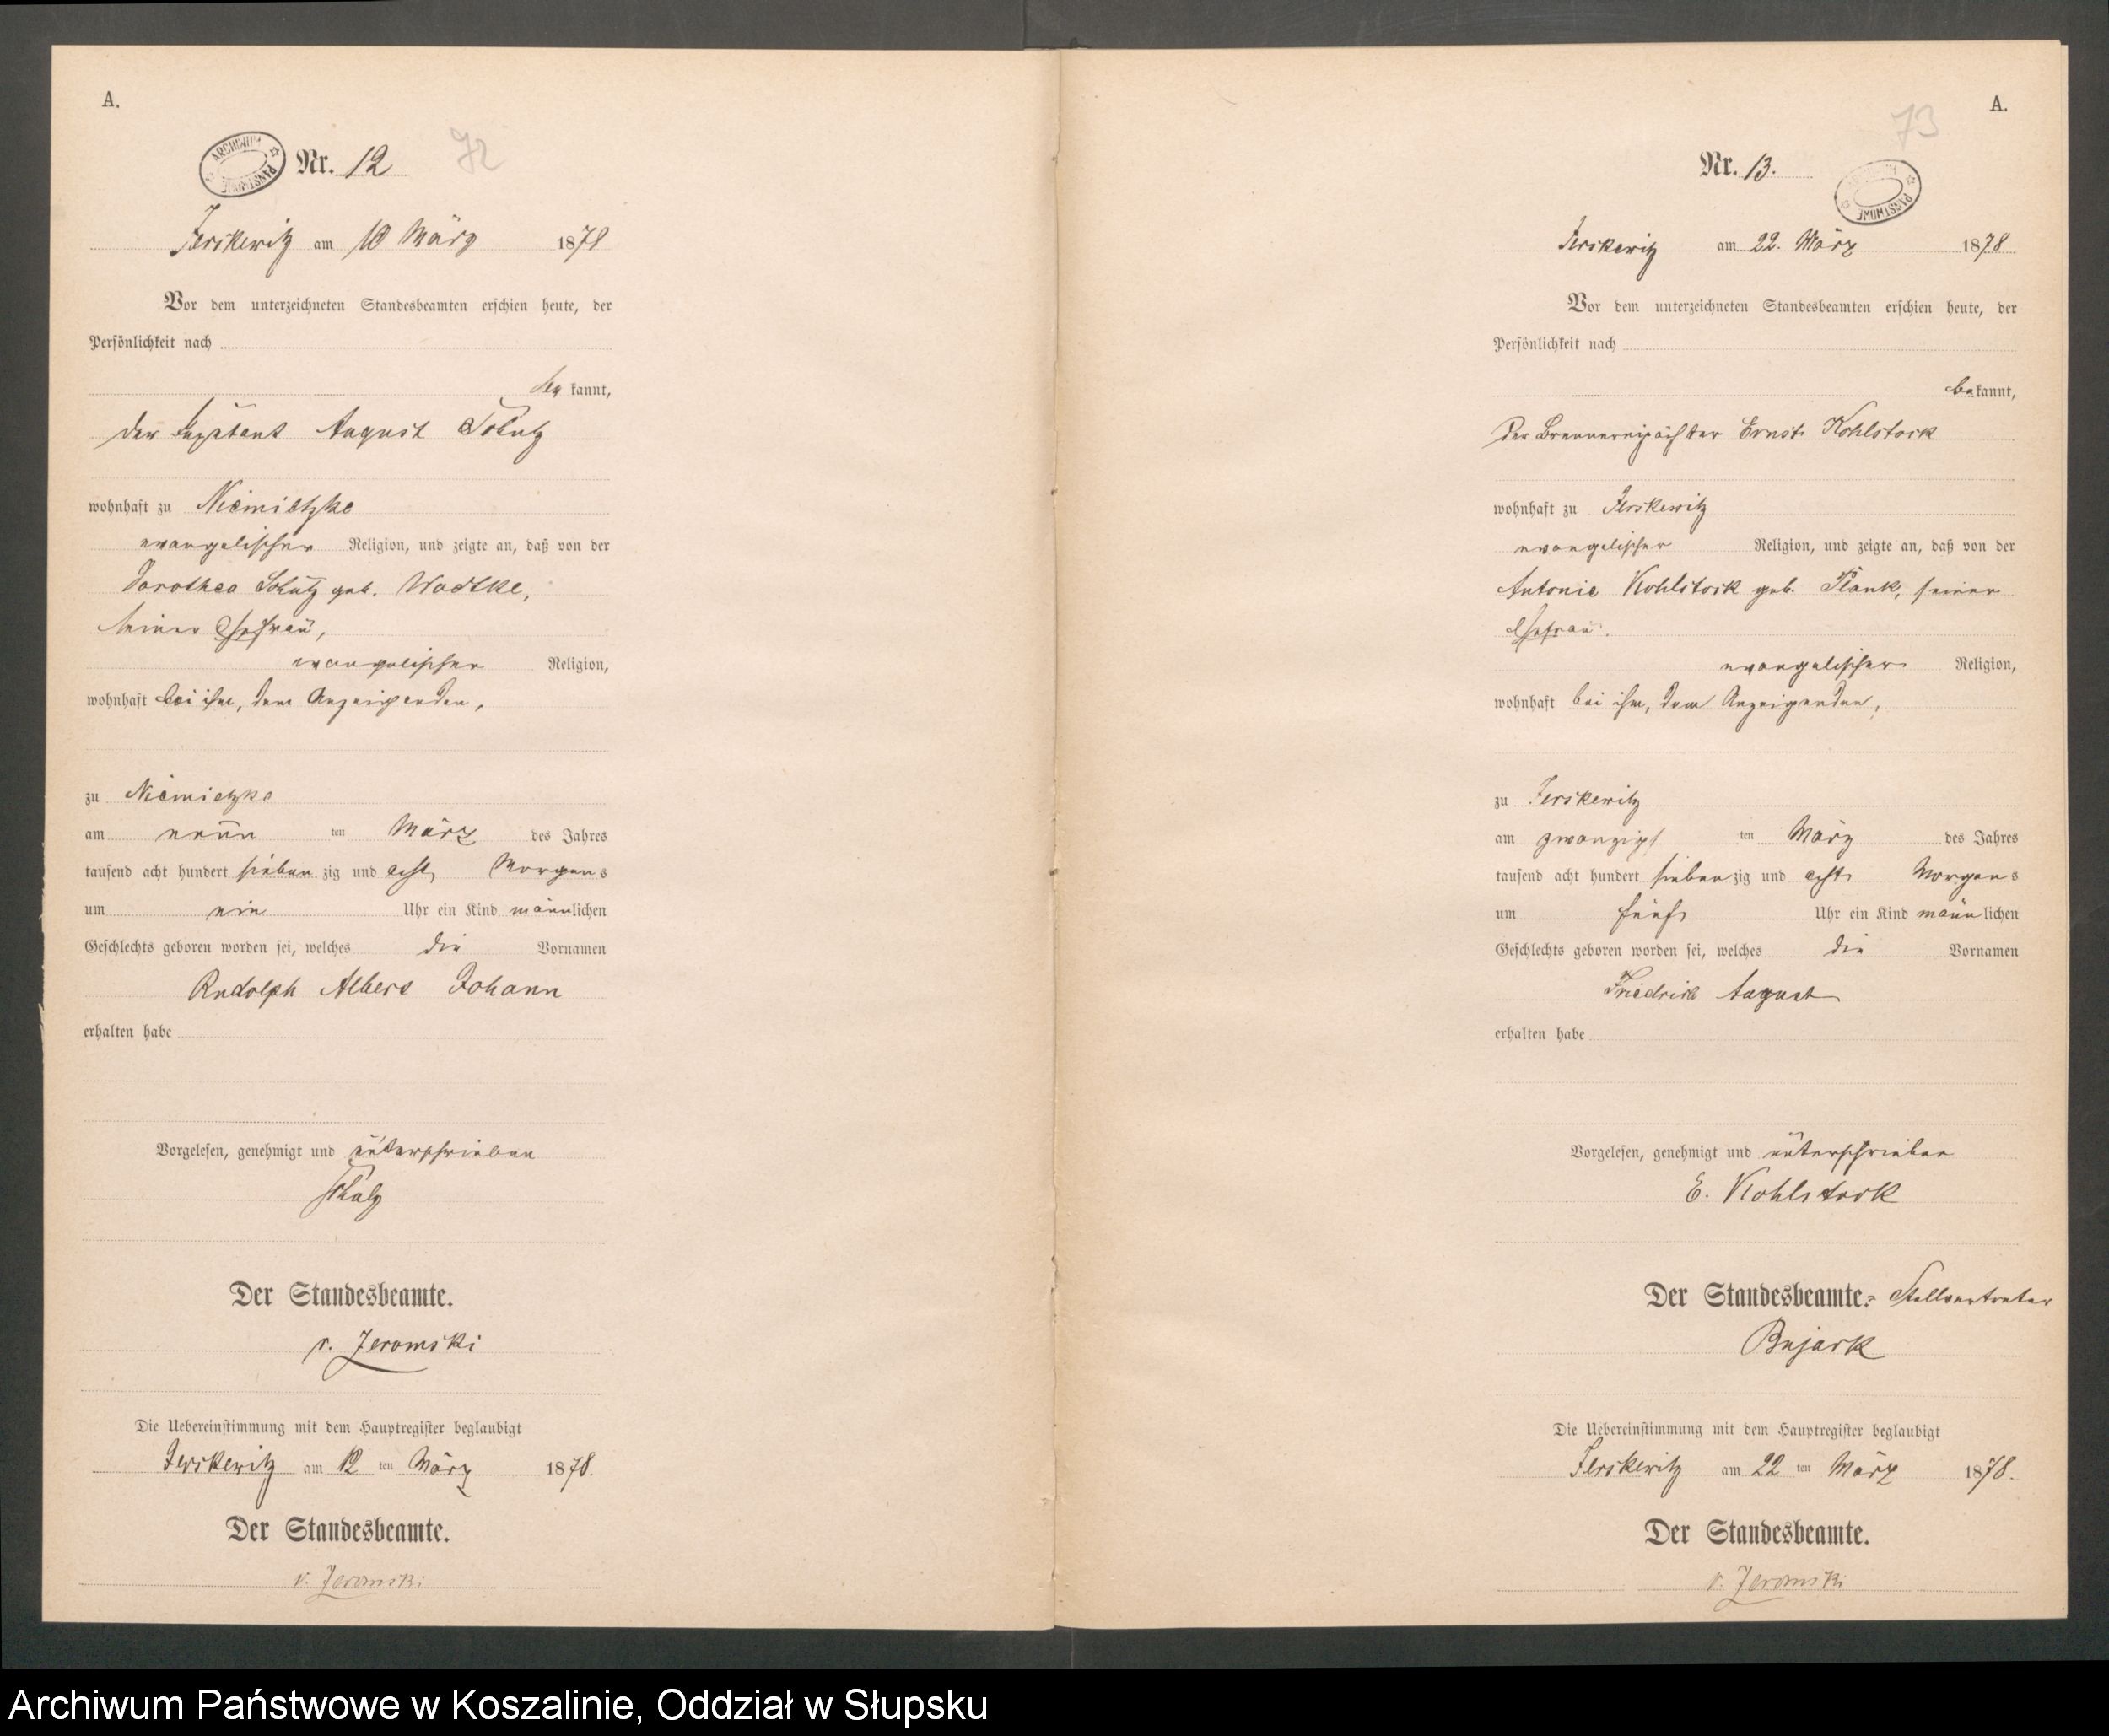 A.
ARCHIWUM PAŃSTWOWE
Nr. 12
72
Jerskewitz am 10 März 1878
Vor dem unterzeichneten Standesbeamten erschien heute, der
Persönlichkeit nach
be kannt,
der August Schulz
wohnhaft zu Niemietzke
evangelischer Religion, und zeigte an, daß von der
Dorothea Schulz geb. Wadtke,
seiner Ehefrau,
evangelischer Religion,
wohnhaft bei ihm, dem Anzeigenden,
zu Niemietzke
am neun ten März des Jahres
tausend acht hundert sieben zig und acht Morgens
um ein Uhr ein Kind männlichen
Geschlechts geboren worden sei, welches die Vornamen
Rudolph Albert Johann
erhalten habe
Vorgelesen, genehmigt und unterschrieben
Schulz
Der Standesbeamte.
v. Jeromski
Die Uebereinstimmung mit dem Hauptregister beglaubigt
Jerskewitz am 12 ten März 1878.
Der Standesbeamte.
v. Jeromski
A.
73
Nr. 13.
PAŃSTWOWE
Jerskewitz am 22. März 1878
Vor dem unterzeichneten Standesbeamten erschien heute, der
Persönlichkeit nach
bekannt,
Der Brennereipächter Ernst Kohlstock
wohnhaft zu Jerskewitz
evangelischer Religion, und zeigte an, daß von der
Antonie Kohlstock geb. Plank, seiner
Ehefrau.
evangelischer Religion,
wohnhaft bei ihm, dem Anzeigenden,
zu Jerskewitz
am zwanzigs ten März des Jahres
tausend acht hundert sieben zig und acht Morgens
um fünf Uhr ein Kind männlichen
Geschlechts geboren worden sei, welches die Vornamen
Friedrich August
erhalten habe
Vorgelesen, genehmigt und unterschrieben
E. Kohlstock
Der Standesbeamte. Stellvertreter
Bujack
Die Uebereinstimmung mit dem Hauptregister beglaubigt
Jerskewitz am 22 ten März 1878.
Der Standesbeamte.
v. Jeromski
Archiwum Państwowe w Koszalinie, Oddział w Słupsku